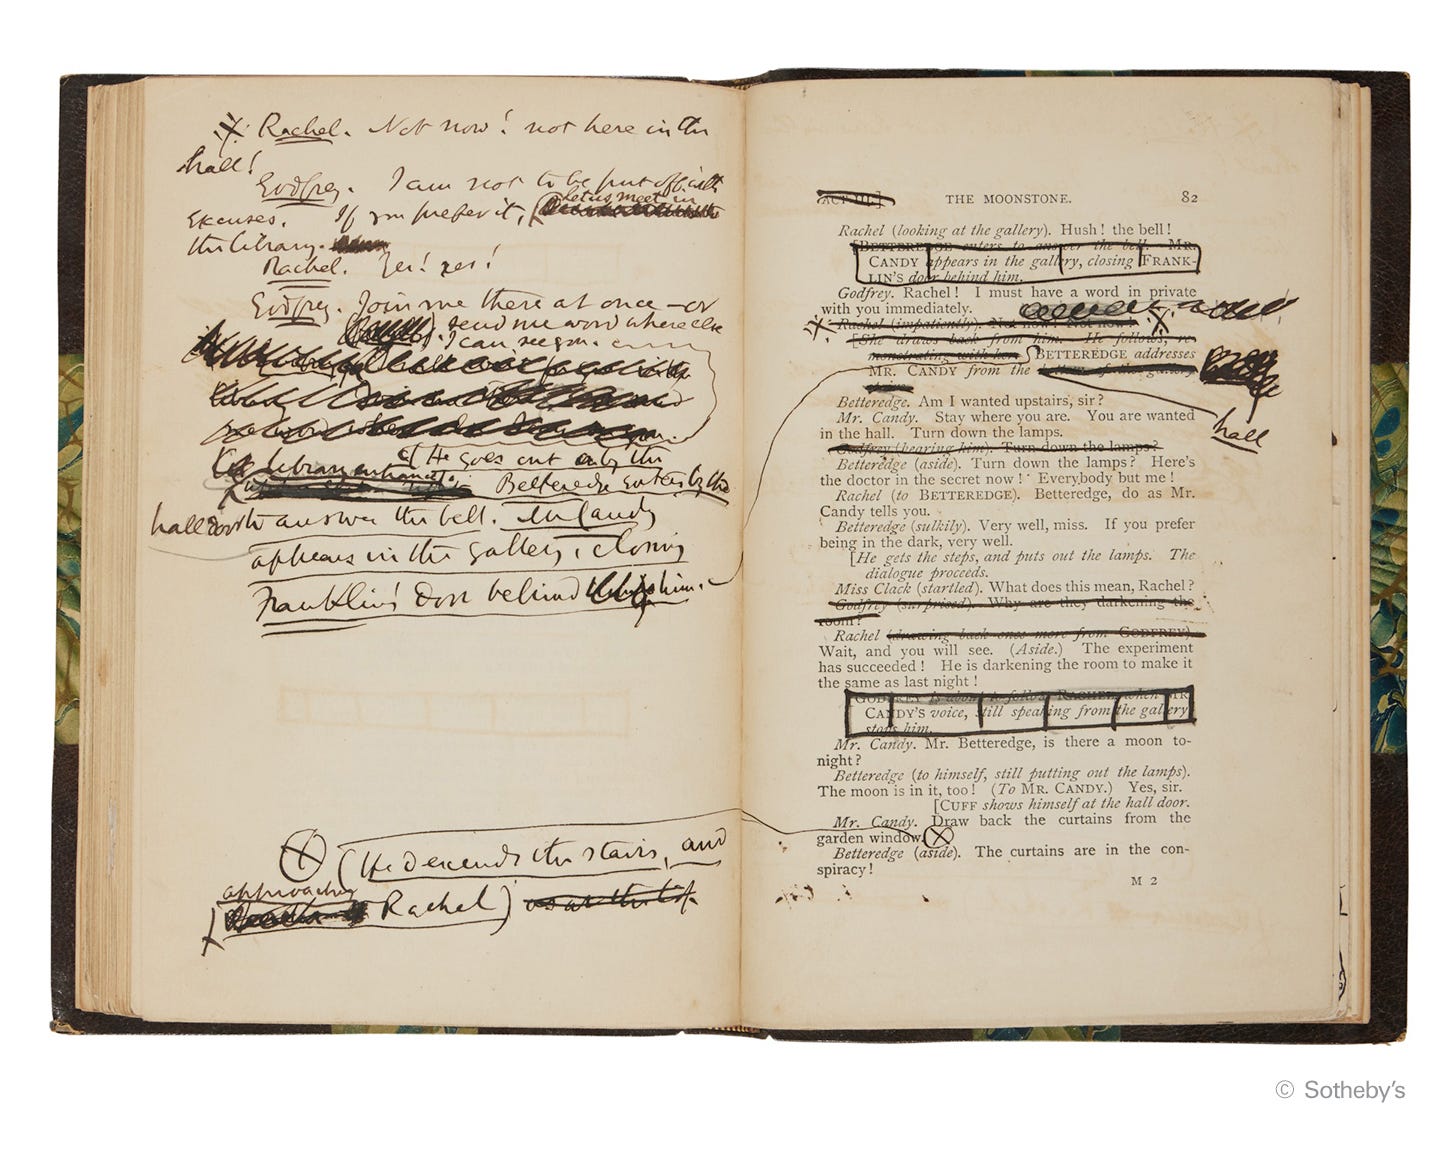 Rachel. Not now! not here in the
hall!
Godfrey. I am not to be put off with
excuses. If you prefer it, let us meet in
the library.
Rachel. Yes! yes!
Godfrey. Join me there at once — or
send me word where else
I can see you.
(He goes out by the
library entrance.
Betteredge enters by the
hall door to answer the bell. Mr Candy
appears in the gallery, closing
Franklin's door behind him.
(He descends the stairs, and
approaching
Rachel)
ACT III.]
THE MOONSTONE. 82
Rachel (looking at the gallery). Hush! the bell!
[BETTEREDGE enters to answer the bell. MR.
CANDY appears in the gallery, closing FRANK-
LIN'S door behind him.
Godfrey. Rachel! I must have a word in private
with you immediately.
Rachel (impatiently). Not now! Not now!
[She draws back from him. He follows, re-
monstrating with her. BETTEREDGE addresses
MR. CANDY from the bottom of the gallery
stairs.
hall
Betteredge. Am I wanted upstairs, sir?
Mr. Candy. Stay where you are. You are wanted
in the hall. Turn down the lamps.
Godfrey (hearing him). Turn down the lamps?
Betteredge (aside). Turn down the lamps? Here's
the doctor in the secret now! Everybody but me!
Rachel (to BETTEREDGE). Betteredge, do as Mr.
Candy tells you.
Betteredge (sulkily). Very well, miss. If you prefer
being in the dark, very well.
[He gets the steps, and puts out the lamps. The
dialogue proceeds.
Miss Clack (startled). What does this mean, Rachel?
Godfrey (surprised). Why are they darkening the
room?
Rachel (drawing back once more from GODFREY).
Wait, and you will see. (Aside.) The experiment
has succeeded! He is darkening the room to make it
the same as last night!
[GODFREY is about to follow RACHEL when MR.
CANDY'S voice, still speaking from the gallery
stops him.
Mr. Candy. Mr. Betteredge, is there a moon to-
night?
Betteredge (to himself, still putting out the lamps).
The moon is in it, too! (To MR. CANDY.) Yes, sir.
[CUFF shows himself at the hall door.
Mr. Candy. Draw back the curtains from the
garden window.
Betteredge (aside). The curtains are in the con-
spiracy!
M 2
© Sotheby's